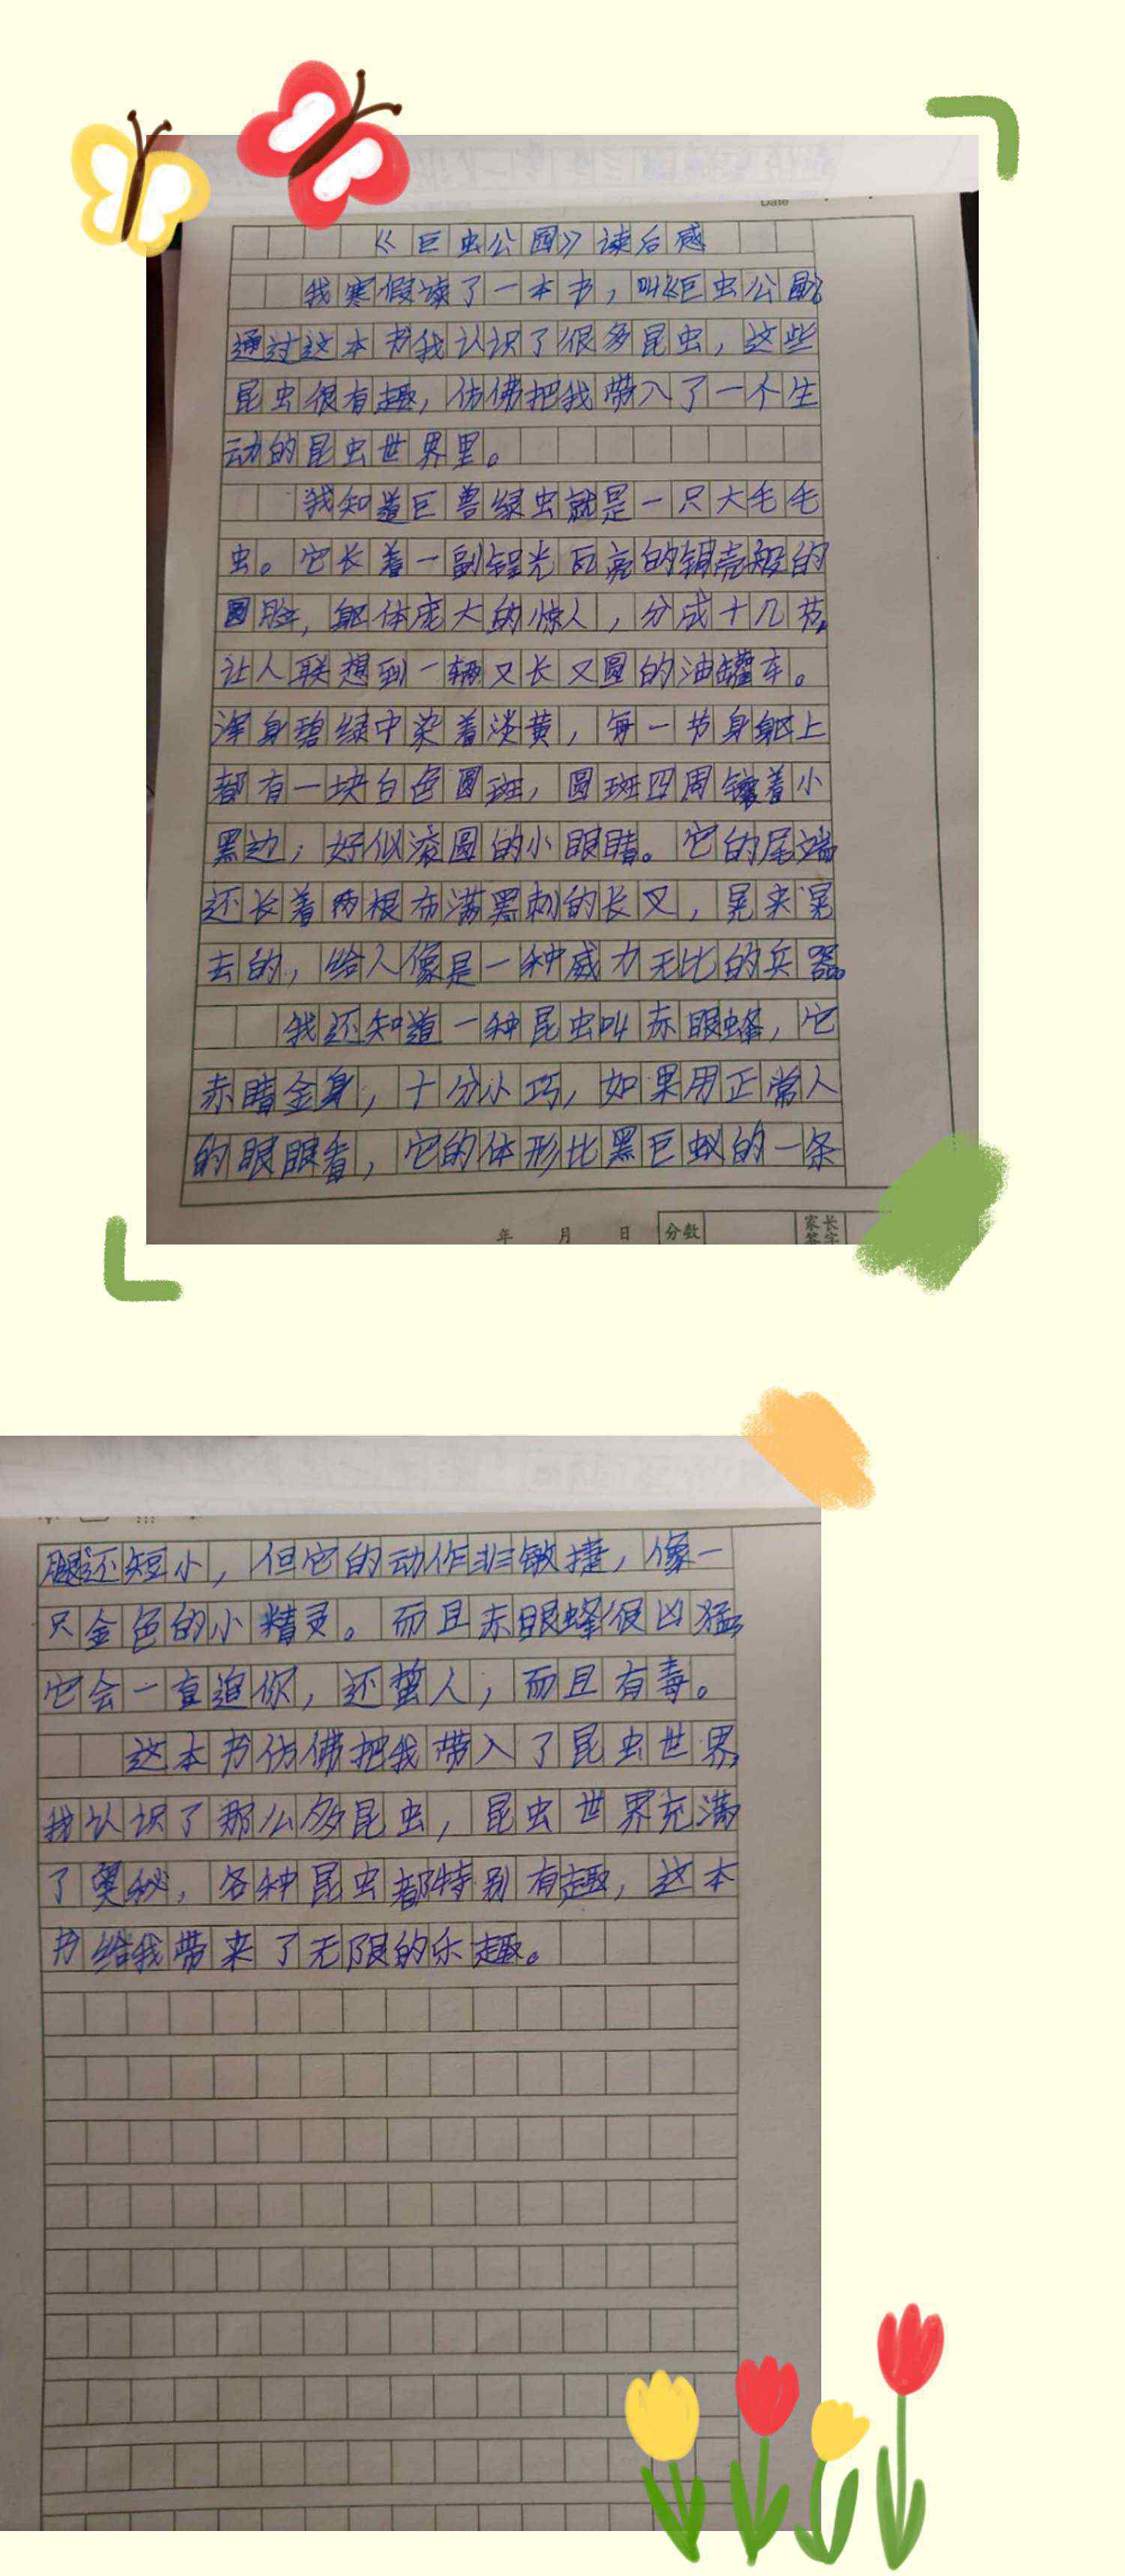 Date
《巨虫公园》读后感
我寒假读了一本书，叫《巨虫公园》
通过这本书我认识了很多昆虫，这些
昆虫很有趣，仿佛把我带入了一个生
动的昆虫世界里。
我知道巨兽绿虫就是一只大毛毛
虫。它长着一副锃光瓦亮的钢壳般的
圆脸，躯体庞大的惊人，分成十几节，
让人联想到一辆又长又圆的油罐车。
浑身碧绿中染着淡黄，每一节身躯上
都有一块白色圆斑，圆斑四周镶着小
黑边；好似滚圆的小眼睛。它的尾端
还长着两根布满黑刺的长叉，晃来晃
去的，给人像是一种威力无比的兵器。
我还知道一种昆虫叫赤眼蜂，它
赤睛金身，十分小巧，如果用正常人
的眼眼看，它的体形比黑巨蚁的一条
年 月 日 分数 家长签字
腿还短小，但它的动作非敏捷，像一
只金色的小精灵。而且赤眼蜂很凶猛，
它会一直追你，还蜇人，而且有毒。
这本书仿佛把我带入了昆虫世界，
我认识了那么多昆虫，昆虫世界充满
了奥秘，各种昆虫都特别有趣，这本
书给我带来了无限的乐趣。